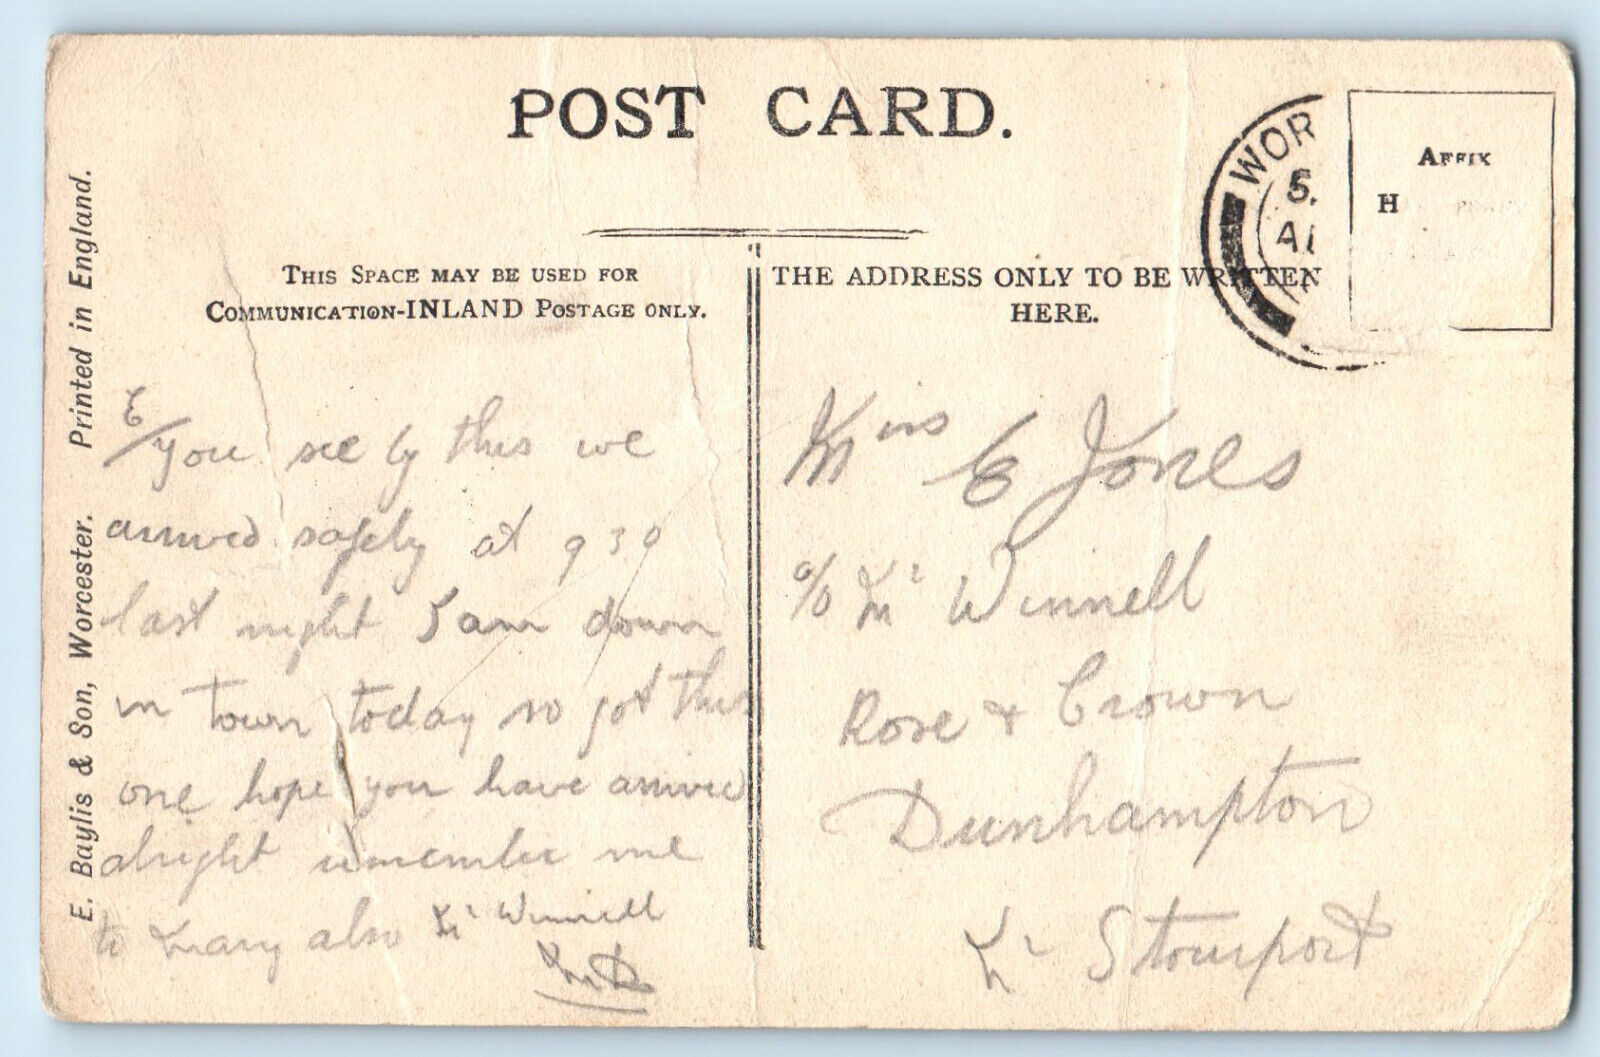 POST CARD.
THIS SPACE MAY BE USED FOR
COMMUNICATION-INLAND POSTAGE ONLY.
THE ADDRESS ONLY TO BE WRITTEN
HERE.
WOR
5.
AU
AFFIX
H
E. Baylis & Son, Worcester. Printed in England.
E/ you see by this we
arrived safely at 9 30
last night I am down
in town today so got this
one hope you have arrived
alright remember me
to Mary also Mr Winnell
Miss E Jones
c/o Mr Winnell
Rose & Crown
Dunhampton
Nr Stourport